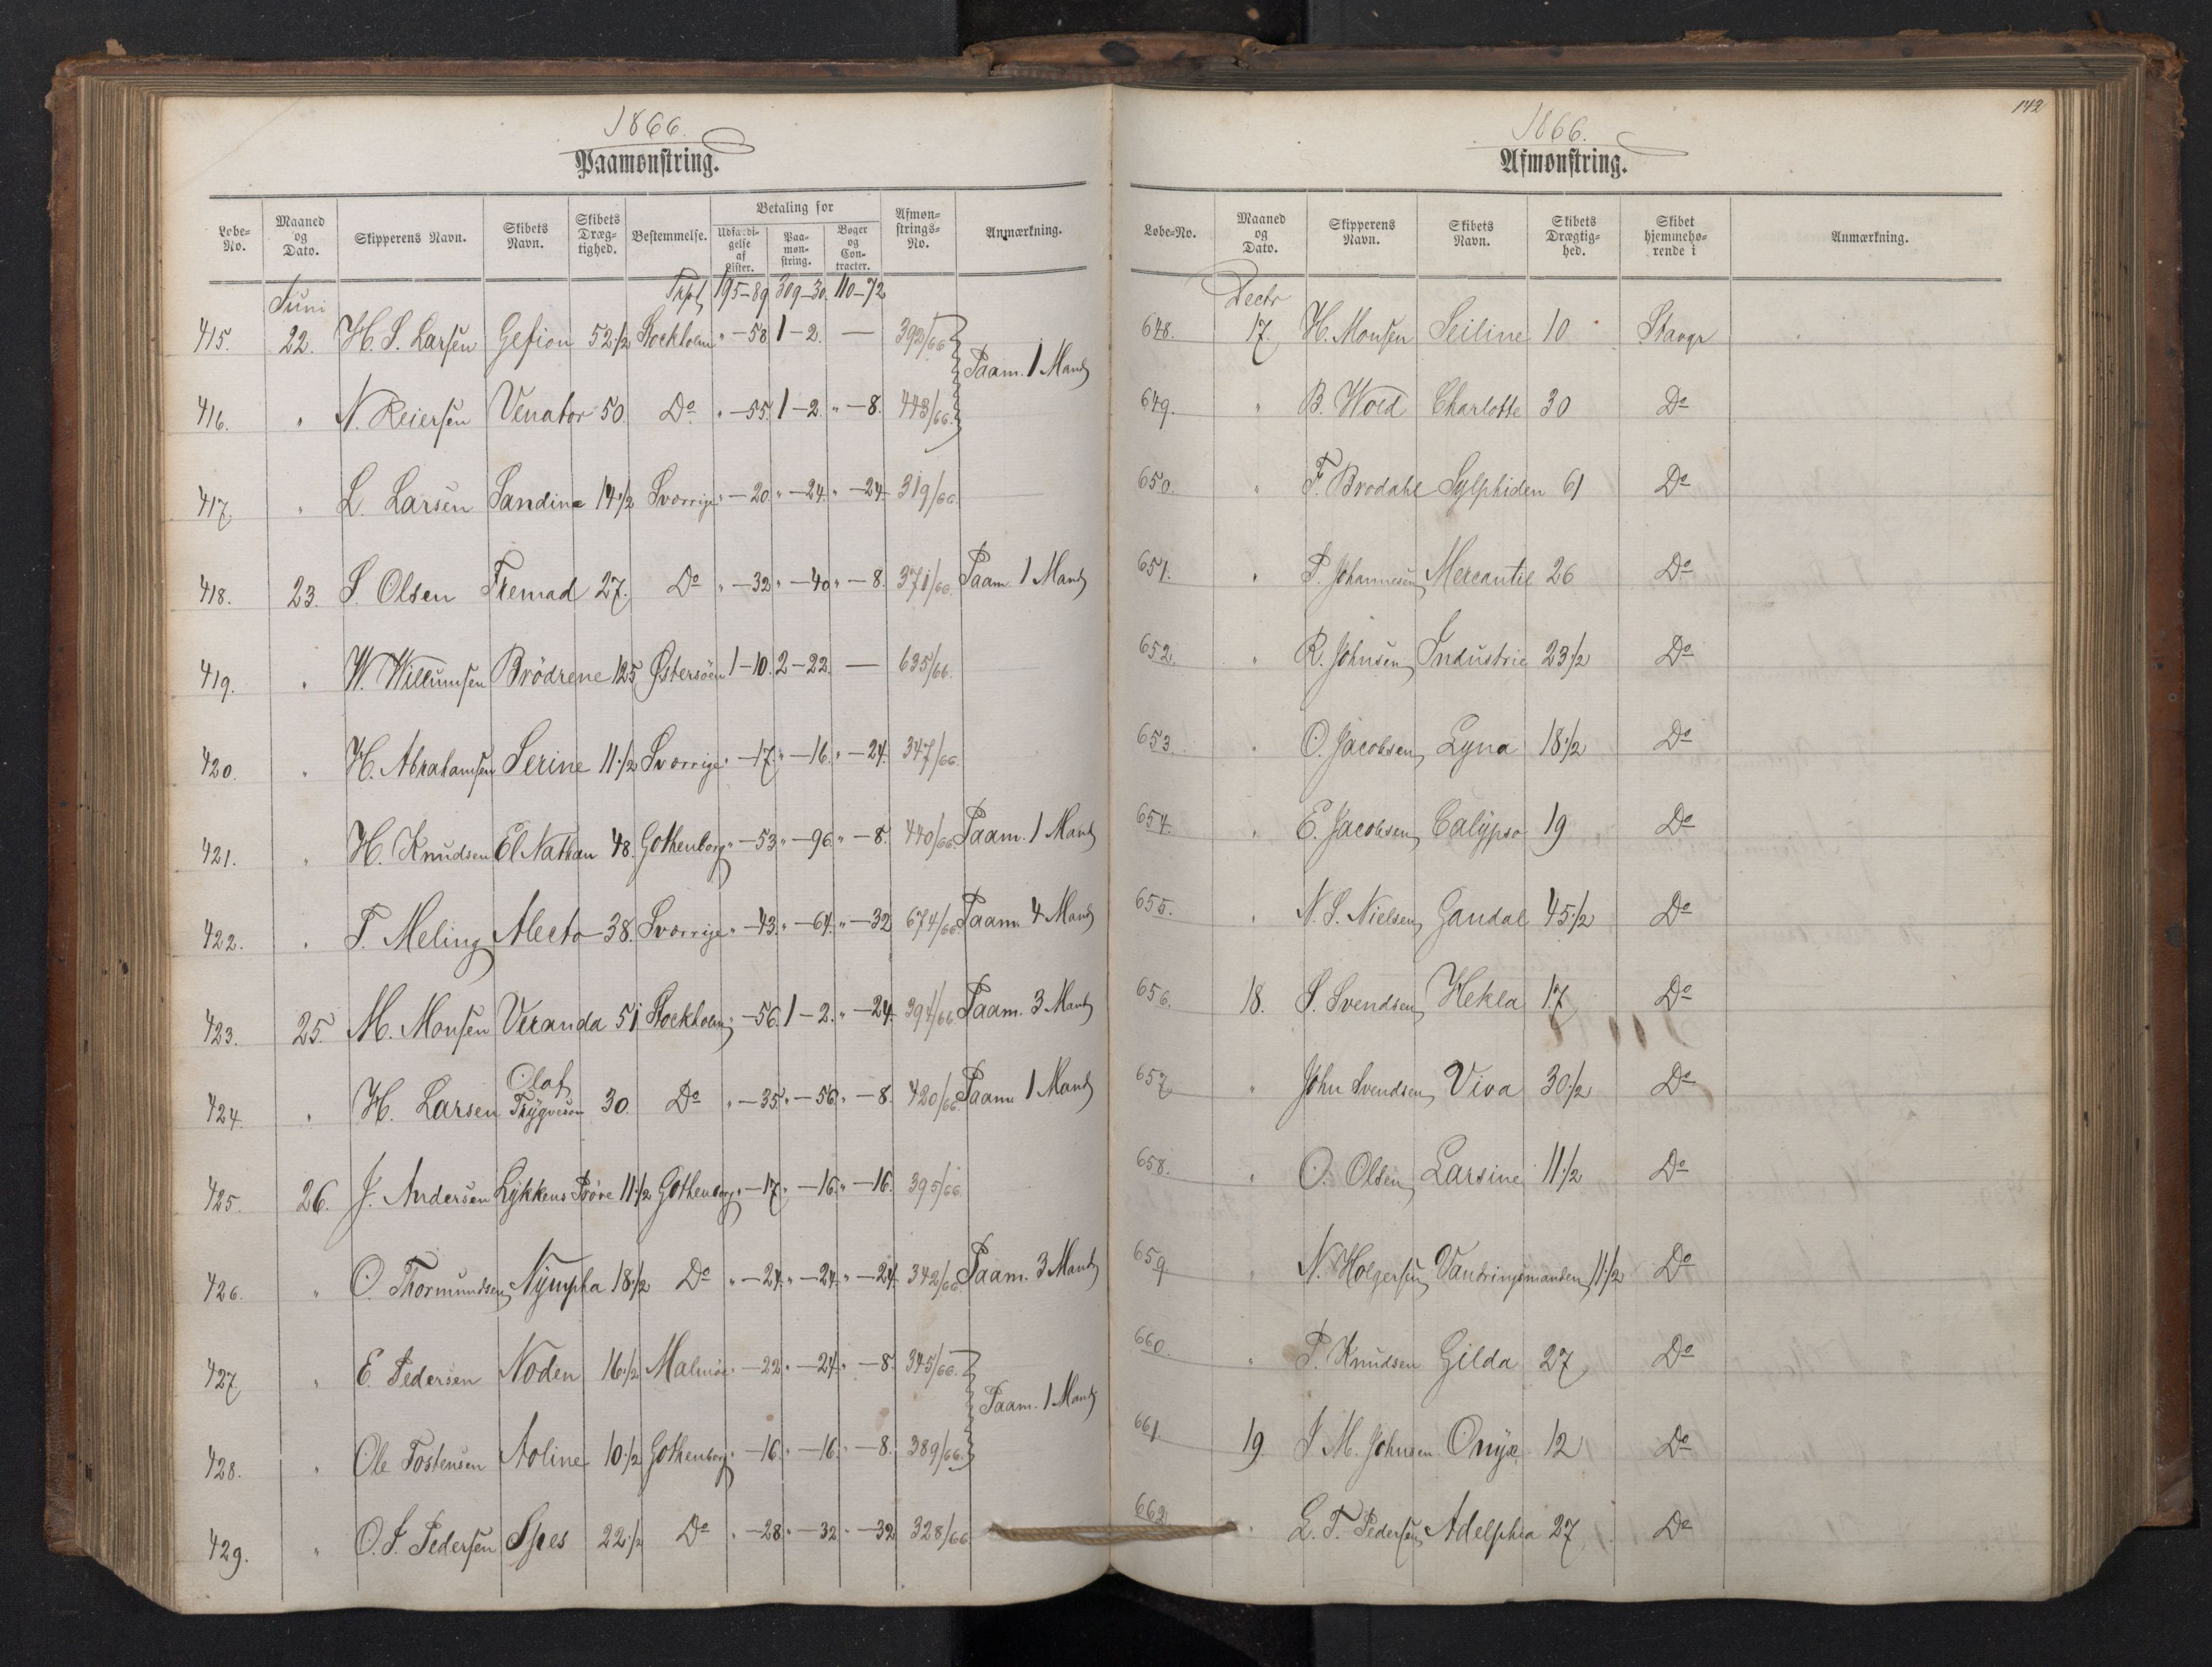 1866.
Paamønstring.
Løbe-No. | Maaned og Dato. | Skipperens Navn. | Skibets Navn. | Skibets Dræg-tighed. | Bestemmelse. | Betaling for Udfærdi-gelse af Lister. | Paa-møn-string. | Bøger og Con-tracter. | Afmøn-strings-No. | Anmærkning.
Juni | Trpt | 195-89 | 309-30. | 110-72
415. | 22. | H. S. Larsen | Gefion | 52 1/2 | Stockholm | " -58 | 1-2. | — | 392/66
Paam. 1 Mand
416. | " | N. Reiersen | Venator | 50. | Do | " -55. | 1-2. | " -8. | 443/66.
417. | " | L. Larsen | Sandine | 14 1/2 | Sverrige | " -20. | " -24. | " -24. | 319/66.
418. | 23. | S. Olsen | Fremad | 27. | Do | " -32 | " -40 | " -8. | 371/66. | Paam. 1 Mand
419. | " | W. Willumsen | Brödrene | 125 | Østersöen | 1-10. | 2-22. | — | 635/66.
420. | " | H. Abrahamsen | Serine | 11 1/2 | Sverrige | " -17. | " -16. | " -24. | 347/66.
421. | " | H. Knudsen | El Nathan | 48. | Gothenborg | " -53 | " -96 | " -8. | 440/66. | Paam. 1 Mand
422. | " | T. Meling | Alecto | 38. | Sverrige | " -43. | " -64. | " -32 | 674/66. | Paam. 4 Mand
423. | 25. | M. Monsen | Veranda | 51 | Stockholm | " -56. | 1-2. | " -24. | 394/66. | Paam. 3 Mand
424. | " | H. Larsen | Olaf Trÿgvesøn | 30. | Do | " -35. | " -56. | " -8. | 420/66. | Paam. 1 Mand
425. | 26. | J. Andersen | Lykkens Pröve | 11 1/2 | Gothenborg | " -17. | " -16. | " -16. | 395/66.
426. | " | O. Thormundsen | Nÿmpha | 18 1/2 | Do | " -24. | " -24. | " -24. | 342/66. | Paam. 3 Mand
427. | " | E. Pedersen | Noden | 16 1/2 | Malmöe | " -22. | " -24. | " -8. | 345/66.
Paam. 1 Mand
428. | " | Ole Tostensen | Noline | 10 1/2 | Gothenborg | " -16. | " -16. | " -8. | 389/66.
429. | " | O. S. Pedersen | Spes | 22 1/2 | Do | " -28. | " -32. | " -32 | 328/66
142
1866.
Afmønstring.
Løbe-No. | Maaned og Dato. | Skipperens Navn. | Skibets Navn. | Skibets Drægtig-hed. | Skibet hjemmehø-rende i | Anmærkning.
Decbr
648. | 17. | H. Monsen | Seiline | 10 | Stavgr
649. | " | B. Wold | Charlotte | 30 | Do
650. | " | F. Brodahl | Sylphiden | 61 | Do
651. | " | P. Johannesen | Mercantil | 26 | Do
652. | " | R. Johnsen | Industrie | 23 1/2 | Do
653. | " | O. Jacobsen | Lyna | 18 1/2 | Do
654. | " | E. Jacobsen | Calÿpso | 19 | Do
655. | " | N. S. Nielsen | Gandal | 45 1/2 | Do
656. | 18. | S. Svendsen | Hekla | 17 | Do
657. | " | John Svendsen | Viva | 30 1/2 | Do
658. | " | O. Olsen | Larsine | 11 1/2 | Do
659 | " | N. Holgersen | Vandringsmanden | 11 1/2 | Do
660. | " | P. Knudsen | Gilda | 27 | Do
661. | 19. | J. M. Johnsen | Onÿx | 12 | Do
662 | " | L. T. Pedersen | Adelphia | 27 | Do